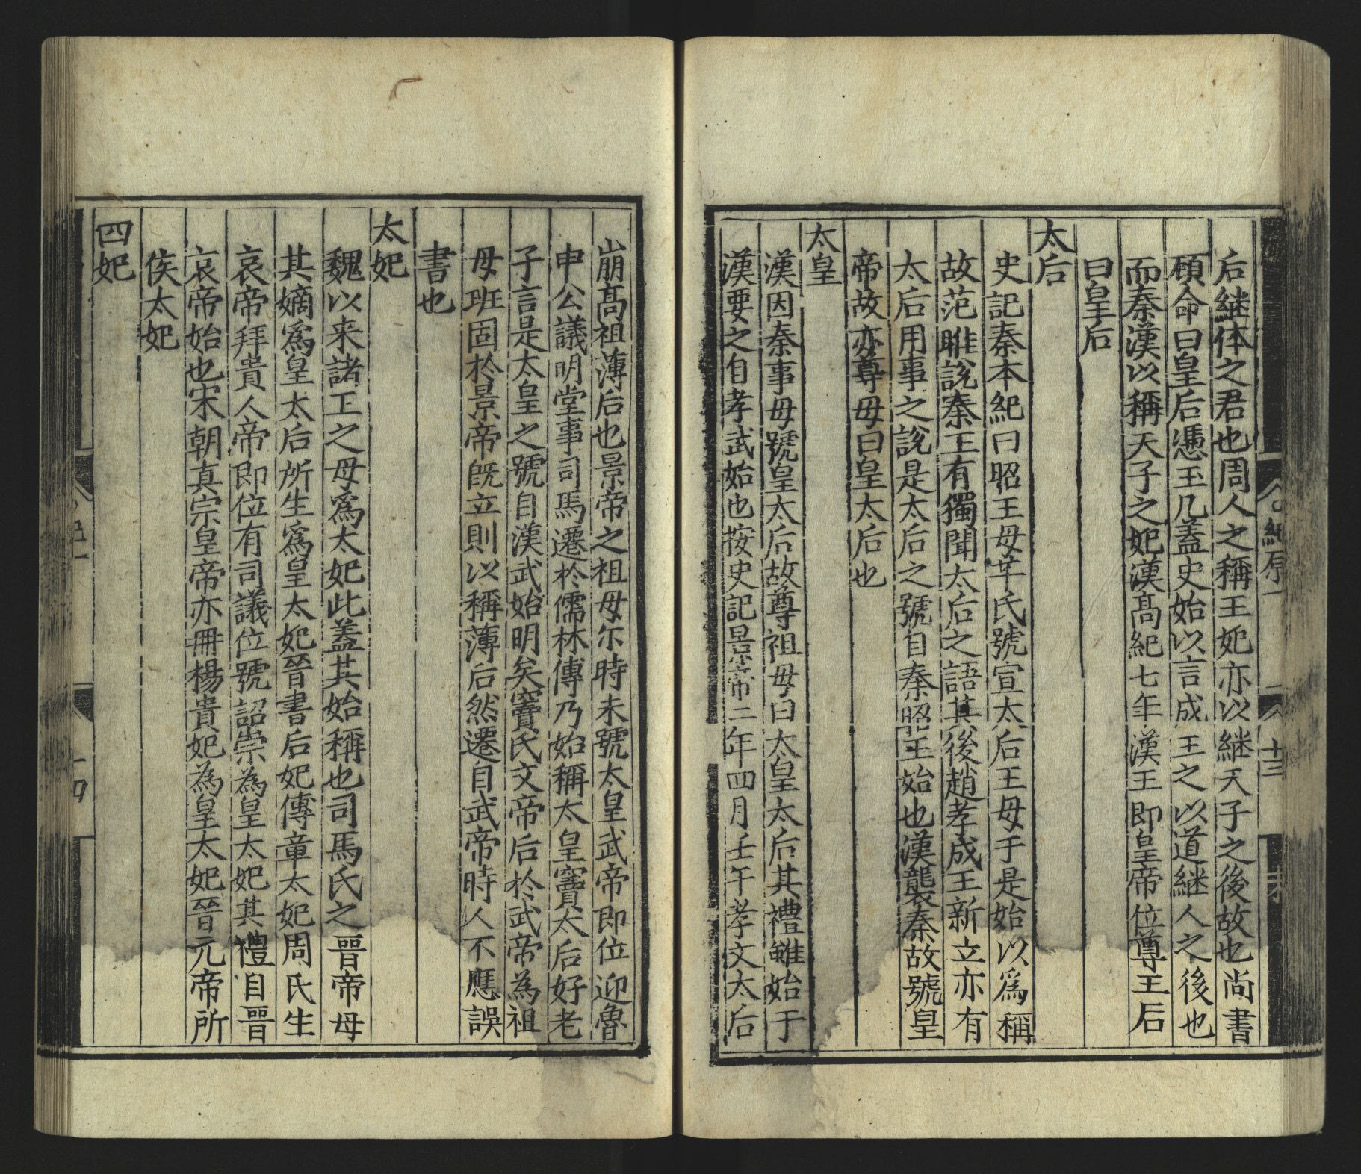 后継体之君也周人之稱王妃亦以継天子之後故也尚書
顧命曰皇后憑玉几蓋史始以言成王之以道継人之後也
而秦漢以稱天子之妃漢髙紀七年漢王即皇帝位尊王后
曰皇后
太后
史記秦本紀曰昭王母羋氏號宣太后王母于是始以爲稱
故范睢說秦王有獨聞太后之語其後趙孝成王新立亦有
太后用事之說是太后之號自秦昭王始也漢襲秦故號皇
帝故亦尊母曰皇太后也
太皇
漢因秦事母號皇太后故尊祖母曰太皇太后其禮雖始于
漢要之自孝武始也按史記景帝二年四月壬午孝文太后
崩髙祖薄后也景帝之祖母尓時未號太皇武帝即位迎魯
申公議明堂事司馬遷於儒林傳乃始稱太皇竇太后好老
子言是太皇之號自漢武始明矣竇氏文帝后於武帝為祖
母班固於景帝旣立則以稱薄后然遷自武帝時人不應誤
書也
太妃
魏以来諸王之母爲太妃此蓋其始稱也司馬氏之晉帝母
其嫡爲皇太后所生爲皇太妃晉書后妃傳章太妃周氏生
哀帝拜貴人帝即位有司議位號詔崇為皇太妃其禮自晉
哀帝始也宋朝真宗皇帝亦冊楊貴妃為皇太妃晉元帝所
侯太妃
四妃